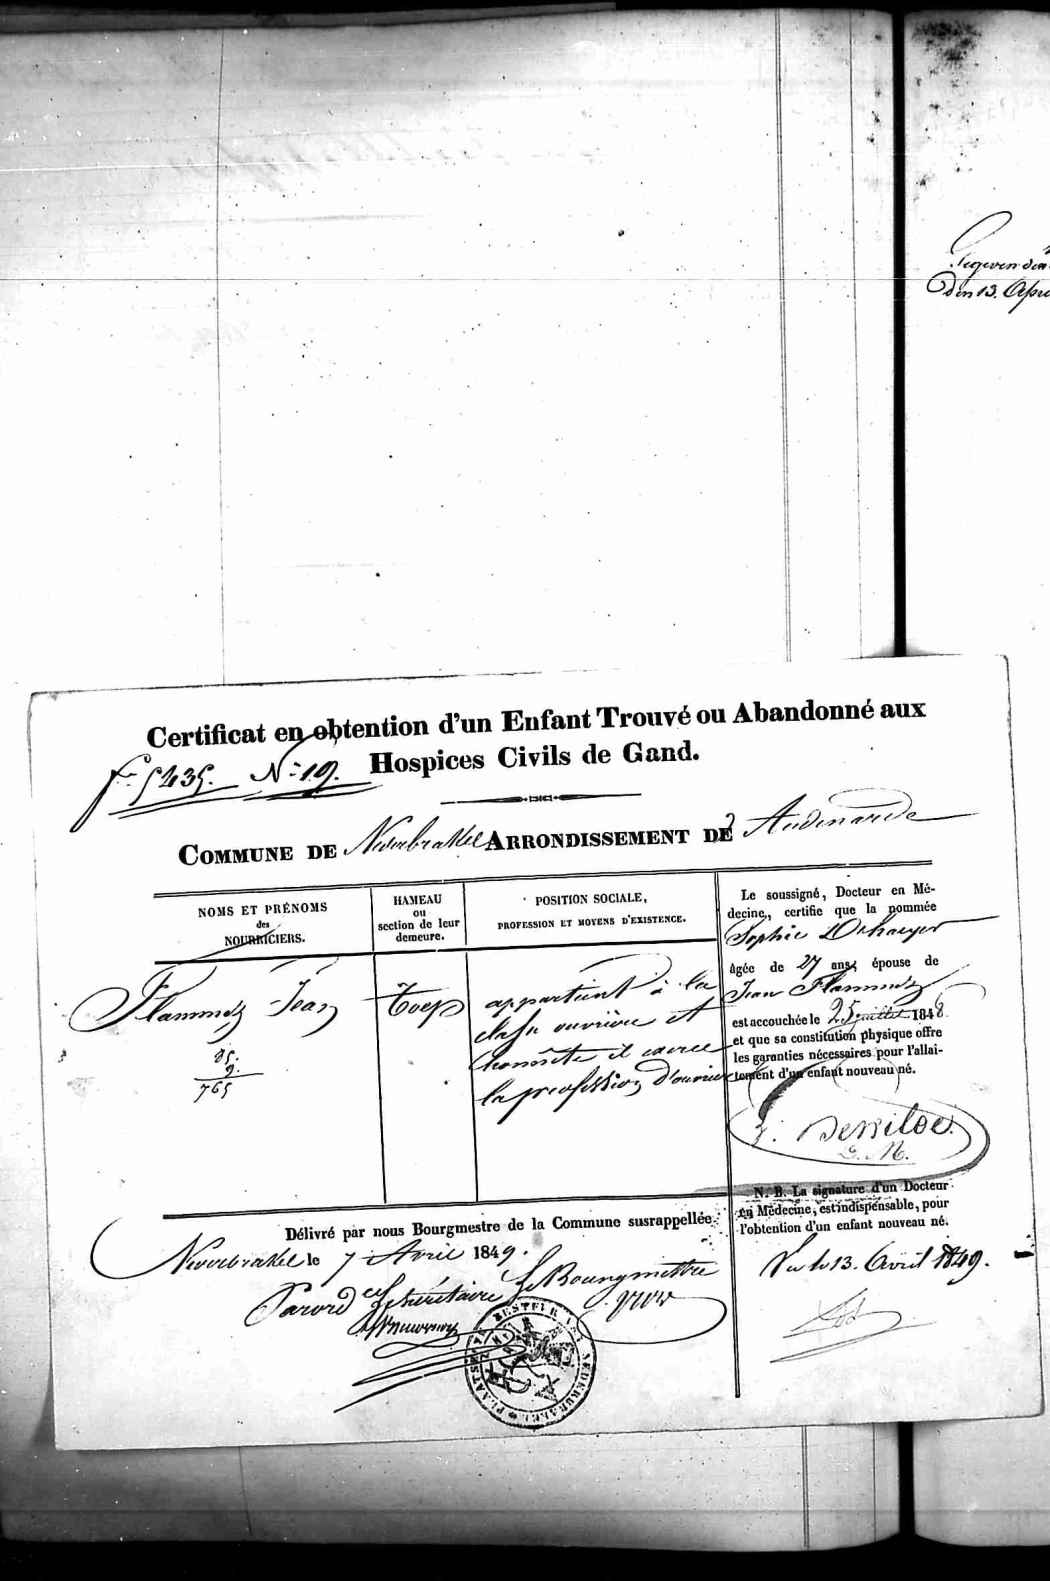 den 13. Apri
Certificat en obtention d'un Enfant Trouvé ou Abandonné aux
Hospices Civils de Gand.
f° 5435. N° 19.
COMMUNE DE Nederbrakel ARRONDISSEMENT DE Audenarde
NOMS ET PRÉNOMS
des
NOURRICIERS.
HAMEAU
ou
section de leur
demeure.
POSITION SOCIALE,
PROFESSION ET MOYENS D'EXISTENCE.
Flammez Jean
85.
9.
765
Toep
appartient à la
classe ouvrière et
honnête il exerce
la profession d'ouvrier
Le soussigné, Docteur en Mé-
decine, certifie que la nommée
Sophie
âgée de 27 ans, épouse de
Jean Flammez
est accouchée le 25 juillet 1848
et que sa constitution physique offre
les garanties nécessaires pour l'allai-
tement d'un enfant nouveau né.
Dewilde.
D. M.
N. B. La signature d'un Docteur
en Médecine, est indispensable, pour
l'obtention d'un enfant nouveau né.
Délivré par nous Bourgmestre de la Commune susrappellée.
Nederbrakel le 7 Avril 1849.
Par ord ce Le Secrétaire Le Bourgmestre
Vu le 13. Avril 1849.
PLAATS BESTUER VAN NEDERBRAKEL